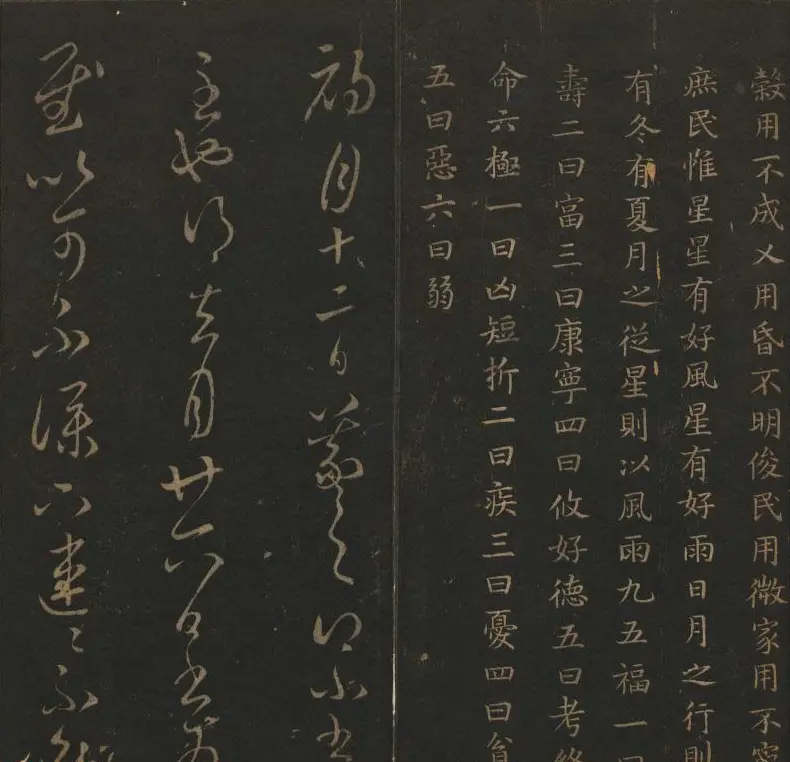 穀用不成乂用昏不明俊民用微家用不寧
庶民惟星星有好風星有好雨日月之行則
有冬有夏月之從星則以風雨九五福一曰
壽二曰富三曰康寧四曰攸好德五曰考終
命六極一曰凶短折二曰疾三曰憂四曰貧
五曰惡六曰弱
初月十二日羲之
去月廿六日書